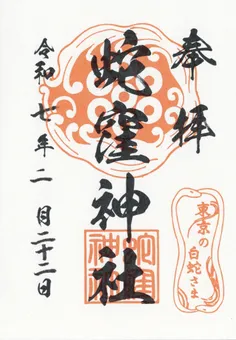 奉拝
蛇窪神社
令和七年二月二十二日
東京の
白蛇さま